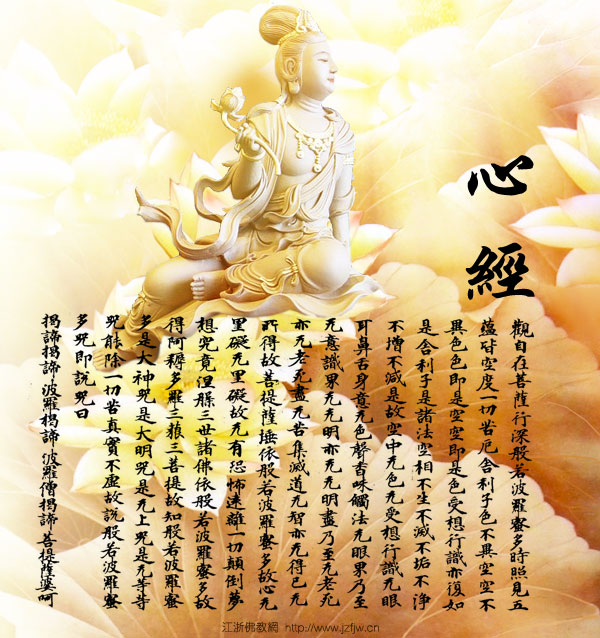 心經
觀自在菩薩行深般若波羅蜜多時照見五
蘊皆空度一切苦厄舍利子色不異空空不
異色色即是空空即是色受想行識亦復如
是舍利子是諸法空相不生不滅不垢不淨
不增不減是故空中无色无受想行識无眼
耳鼻舌身意无色聲香味觸法无眼界乃至
无意識界无无明亦无无明盡乃至无老死
亦无老死盡无苦集滅道无智亦无得已无
所得故菩提薩埵依般若波羅蜜多故心无
罣礙无罣礙故无有恐怖遠離一切顛倒夢
想究竟涅槃三世諸佛依般若波羅蜜多故
得阿耨多羅三藐三菩提故知般若波羅蜜
多是大神咒是大明咒是无上咒是无等等
咒能除一切苦真實不虛故說般若波羅蜜
多咒即說咒曰
揭諦揭諦 波羅揭諦 波羅僧揭諦 菩提薩婆呵
江浙佛教網 http://www.jzfjw.cn